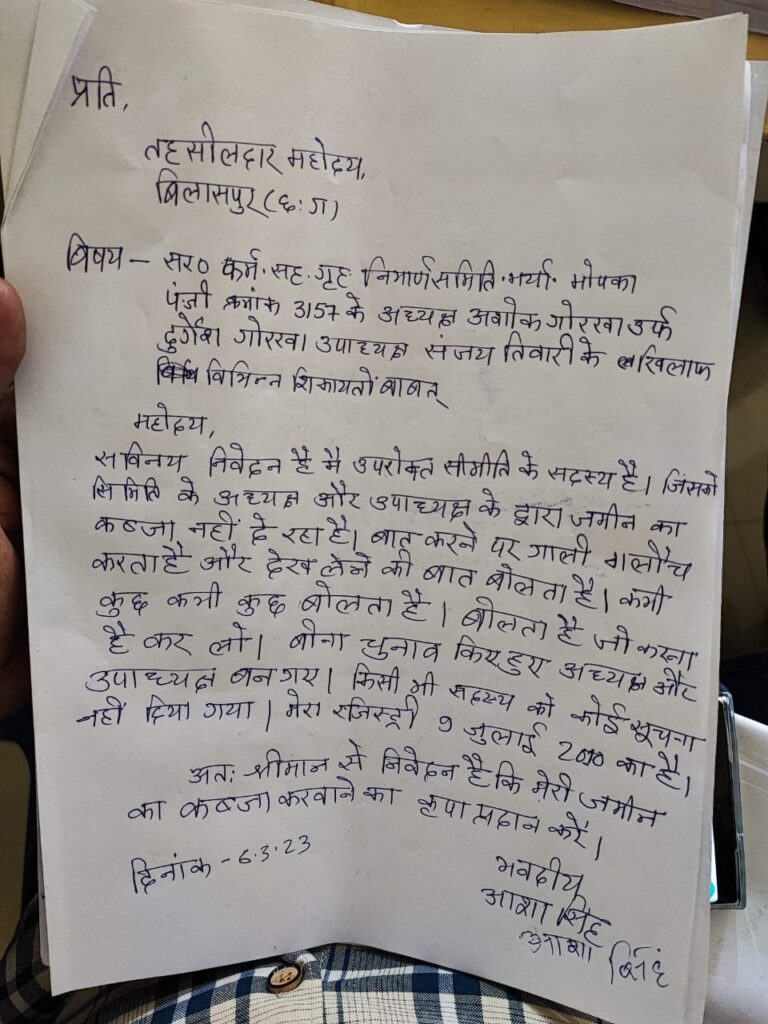 प्रति,
तहसीलदार महोदय,
बिलासपुर (छ.ग)
विषय - सर० कर्म. सह. गृह निमार्ण समिति. मर्या. मोपका
पंजी क्रमांक 3157 के अध्यक्ष अशोक गोरख उर्फ
दुर्गेश गोरख। उपाध्यक्ष संजय तिवारी के खिलाफ
विभिन्न शिकायतों बाबत्
महोदय,
सविनय निवेदन है मै उपरोक्त सीमीति के सदस्य है। जिसको
सिमिति के अध्यक्ष और उपाध्यक्ष के द्वारा जमीन का
कब्जा नहीं दे रहा है। बात करने पर गाली गलौच
करता है और देख लेने की बात बोलता है। कभी
कुछ कभी कुछ बोलता है। बोलता है जो करना
है कर लो। बीना चुनाव किए हुए अध्यक्ष और
उपाध्यक्ष बन गए। किसी भी सदस्य को कोई सूचना
नहीं दिया गया। मेरा रजिस्ट्री 9 जुलाई 2010 का है।
अतः श्रीमान से निवेदन है कि मेरी जमीन
का कब्जा करवाने का कृपा प्रदान करें।
दिनांक - 6.3.23
भवदीय
आशा सिंह
आशा सिंह